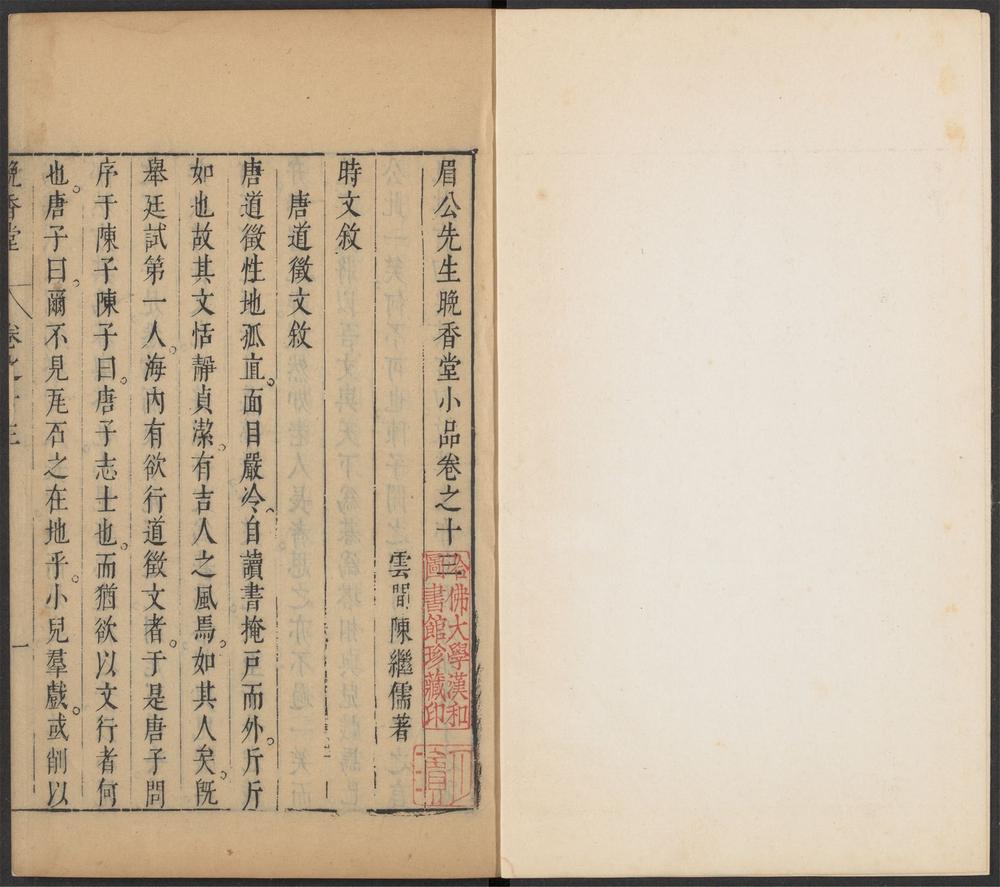 眉公先生晚香堂小品卷之十三
雲間陳繼儒著
時文敘
唐道徵文敘
唐道徵性地孤直。面目嚴冷。自讀書掩戸而外。斤斤
如也故其文恬靜貞潔。有吉人之風焉。如其人矣。旣
舉廷試第一人。海內有欲行道徵文者。于是唐子問
序于陳子陳子曰。唐子志士也。而猶欲以文行者何
也。唐子曰。爾不見瓦石之在地乎。小兒羣戲。或削以
晚香堂
卷之十三
一
哈佛大學漢和
圖書館珍藏印